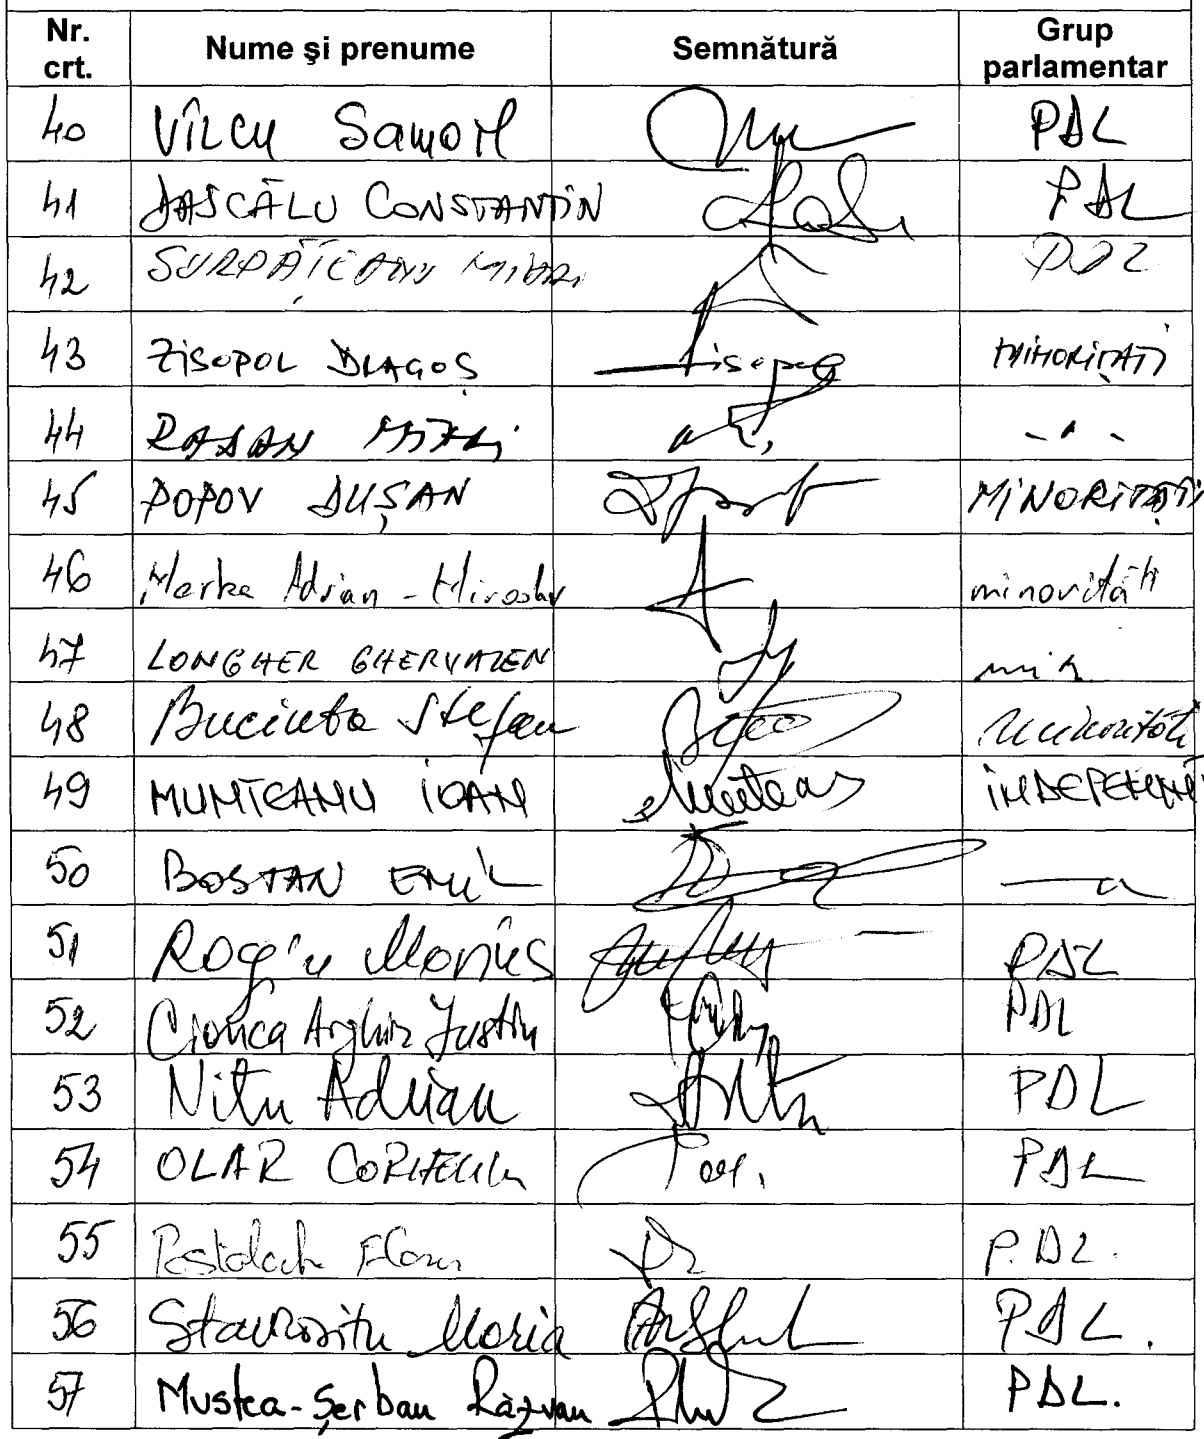 Nr. crt. Nume și prenume Semnătură Grup parlamentar
40 VÎLCU Samoil PDL
41 DASCĂLU CONSTANTIN PDL
42 SURPĂȚEANU MIHAI PDL
43 ZISOPOL DRAGOȘ Zisopol MINORITĂȚI
44 RADAN MIHAI - " -
45 POPOV DUȘAN MINORITĂȚI
46 Merka Adrian - Miroslav minorități
47 LONGHER GHERVAZEN min.
48 Buciuta Ștefan minorități
49 MUNTEANU IOAN Munteanu INDEPENDENT
50 BOSTAN EMIL
51 Rogin Marius PDL
52 Cionca Arghir Justin PDL
53 Nitu Adrian PDL
54 OLAR CORNELIU PDL
55 Postolachi Florin P.DL.
56 Stavrositu Maria PDL.
57 Mustea-Șerban Răzvan PDL.